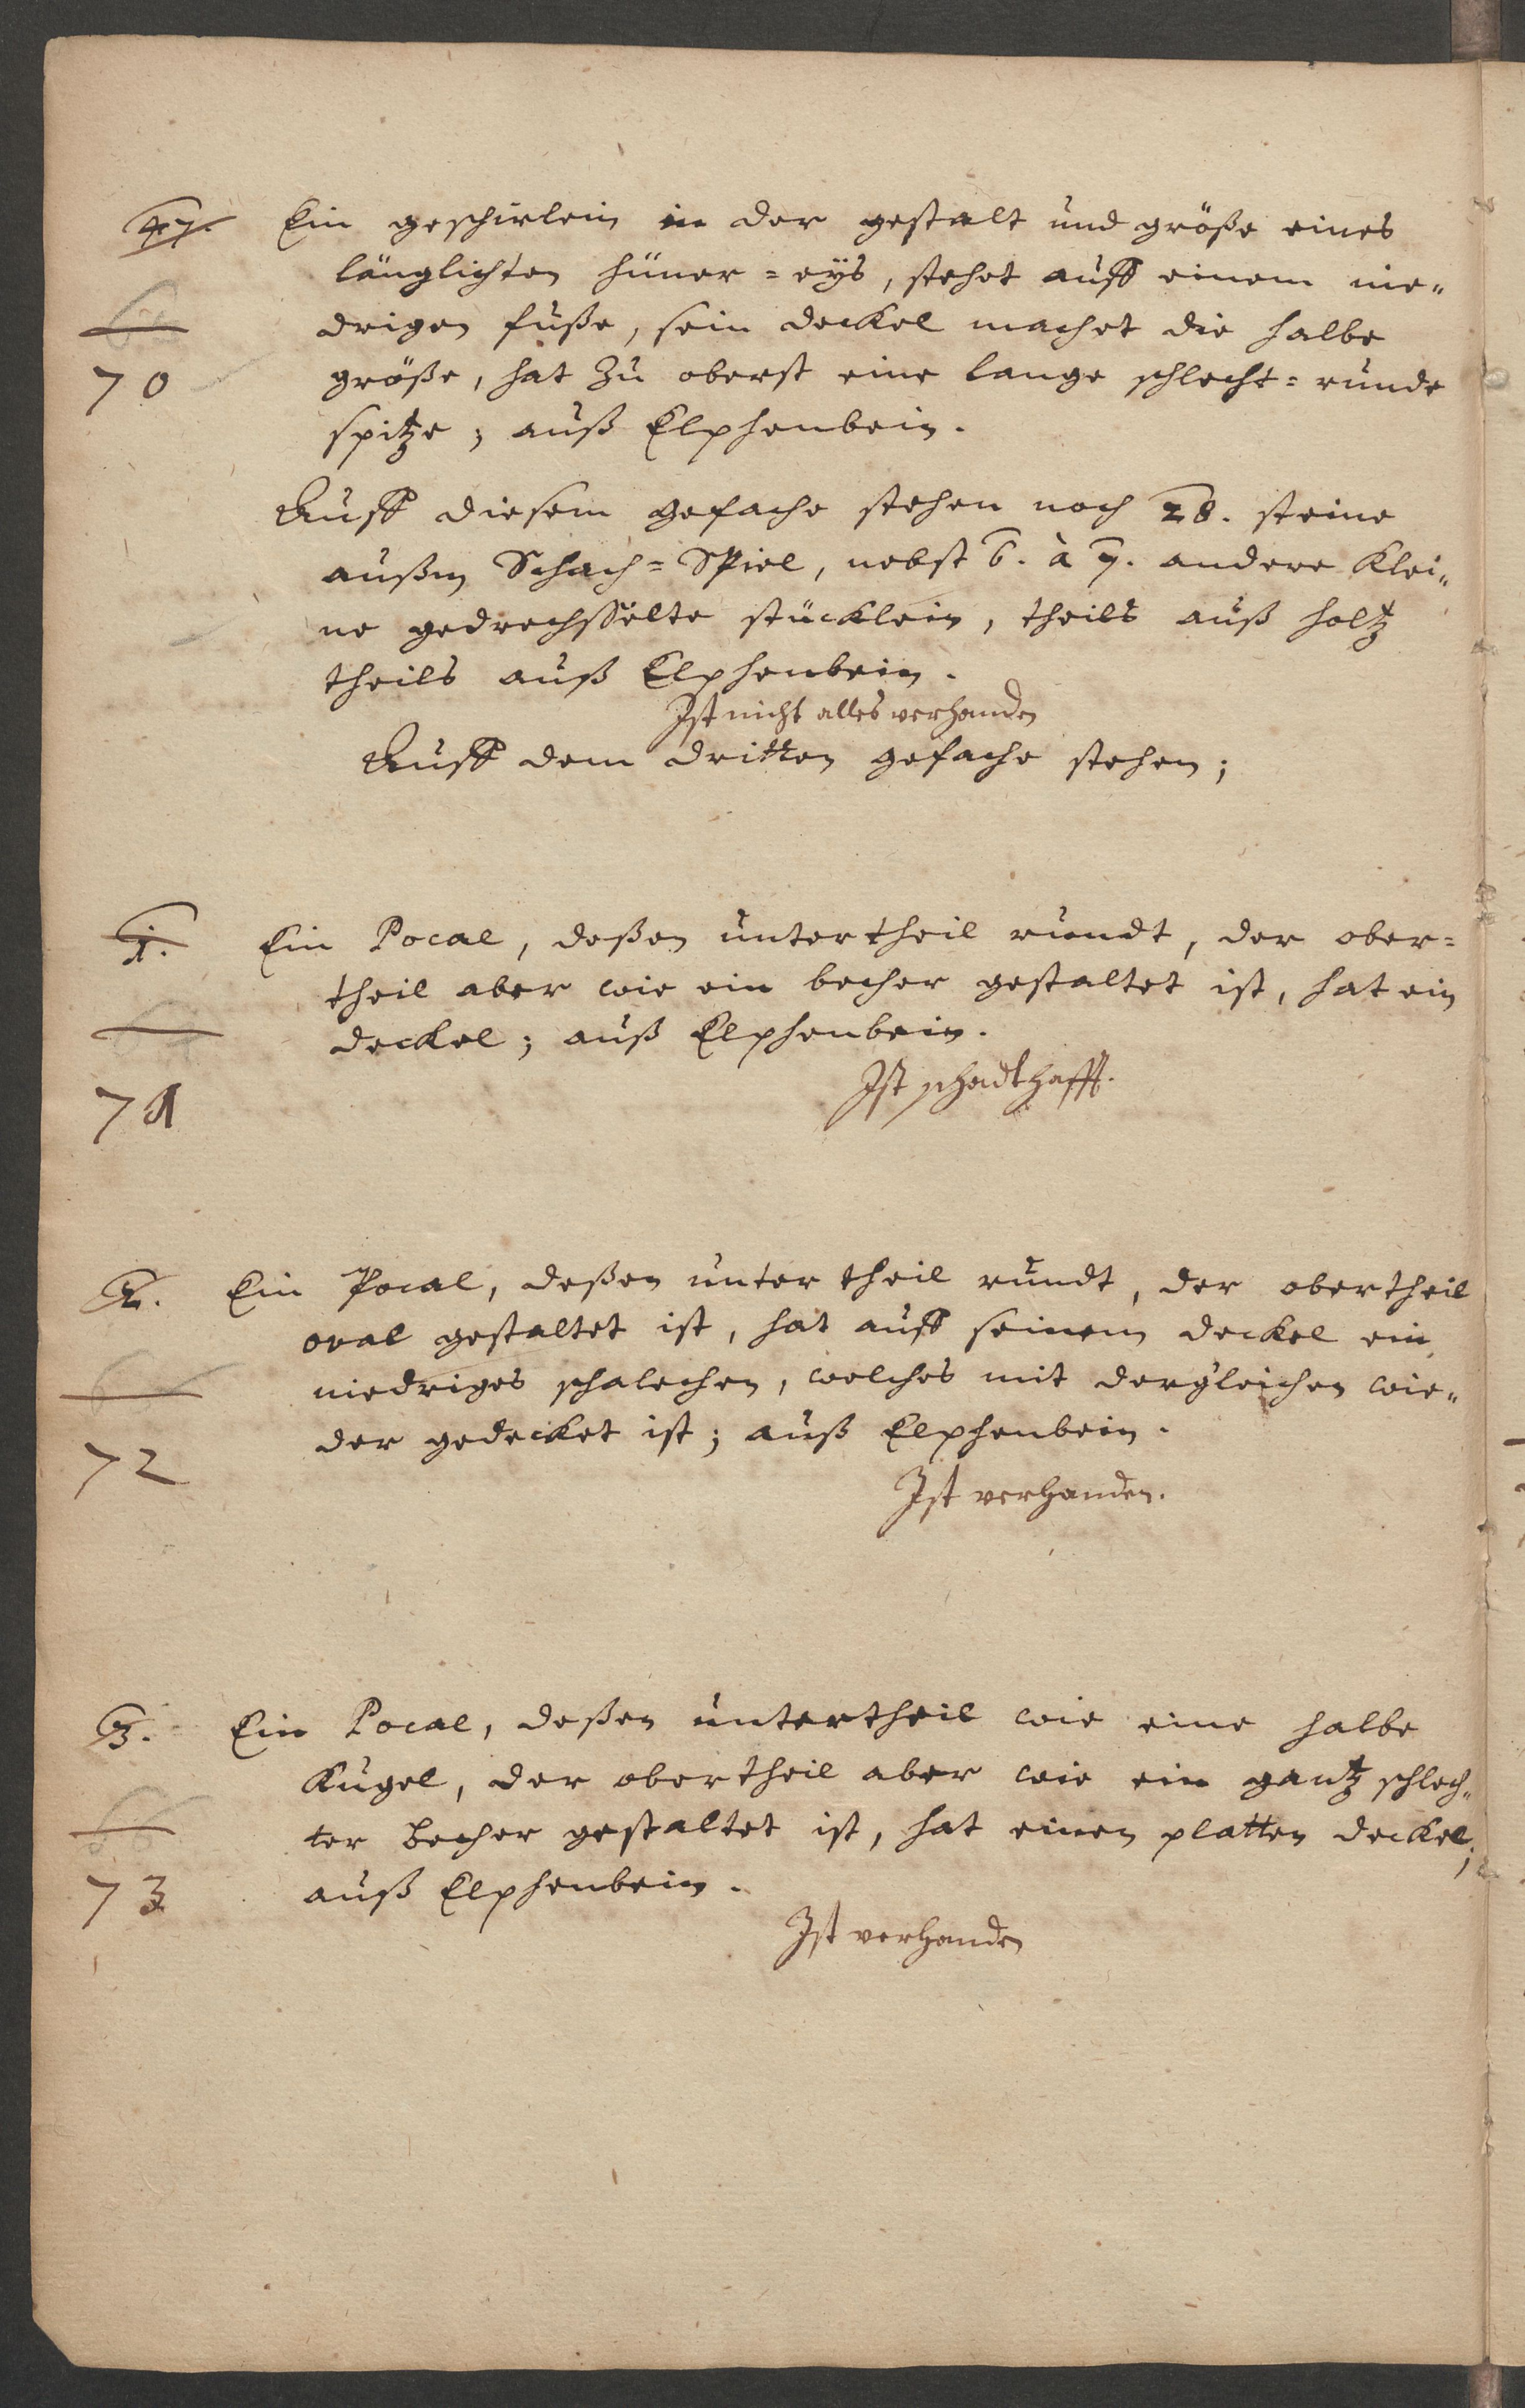 47. Ein geschirlein in der gestalt und größe eines
länglichten hüner=eÿs, stehet auff einem nie-
drigen fuße, sein deckel machet die halbe
70 größe, hat zu oberst eine lange schlecht=runde
spitze; auß Elphenbein.
Auff diesem gefache stehen noch 28. steine
außm Schach=Spiel, nebst 6. à 7. andere klei-
ne gedrechsselte stücklein, theils auß holtz
theils auß Elphenbein.
Ist nicht alles verhanden
Auff dem dritten gefache stehen;
1. Ein Pocal, deßen untertheil rundt, der ober=
theil aber wie ein becher gestaltet ist, hat ein
deckel; auß Elphenbein.
Ist schadthafft.
71
2. Ein Pocal, deßen untertheil rundt, der obertheil
oval gestaltet ist, hat auff seinem deckel ein
niedriges schalechen, welches mit dergleichen wie-
der gedecket ist; auß Elphenbein.
72
Ist verhanden.
3. Ein Pocal, deßen untertheil wie eine halbe
Kugel, der obertheil aber wie ein gantz schlech-
ter Becher gestaltet ist, hat einen platten deckel;
73 auß Elphenbein.
Ist verhanden